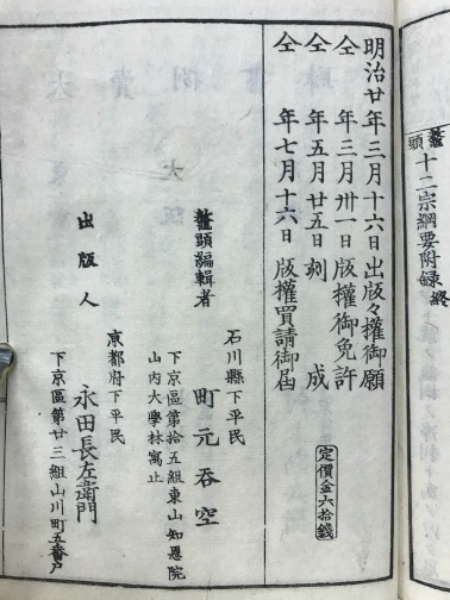 鼇頭十二宗綱要附録終
明治廿年三月十六日出版々權御願
仝年三月卅一日版權御免許
仝年五月廿五日刻成
仝年七月十六日版權買請御届
定價金六拾錢
石川縣下平民
鼇頭編輯者 町元呑空
下京區第拾五組東山知恩院
山内大學林寓止
京都府下平民
出版人 永田長左衛門
下京區第廿三組山川町五番戸